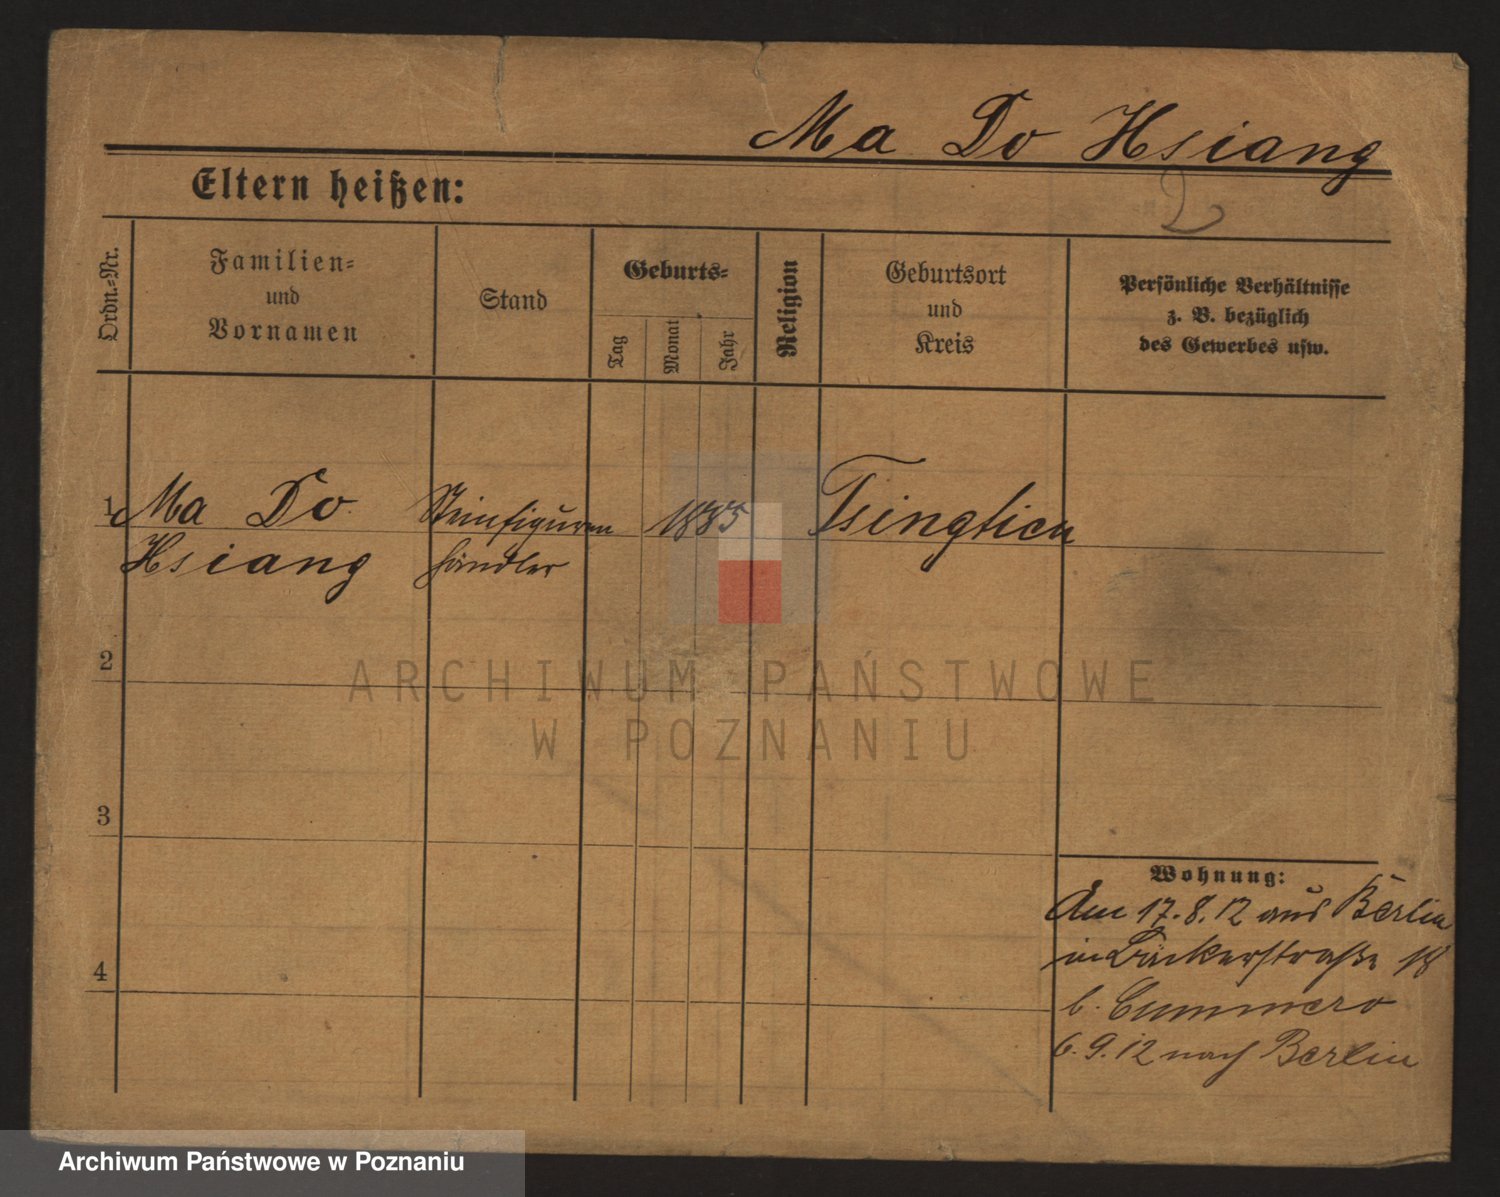 Ma Do Hsiang
2
Eltern heißen:
Ordn.-Nr.
Familien-
und
Vornamen
Stand
Geburts-
Tag
Monat
Jahr
Religion
Geburtsort
und
Kreis
Persönliche Verhältnisse
z. B. bezüglich
des Gewerbes usw.
1
Ma Do
Hsiang
Steinfiguren
händler
1885
Tsingtien
2
3
4
Wohnung:
Am 17.8.12 aus Berlin
in Bäckerstraße 18
b. Cummero
6.9.12 nach Berlin
ARCHIWUM PAŃSTWOWE
W POZNANIU
Archiwum Państwowe w Poznaniu